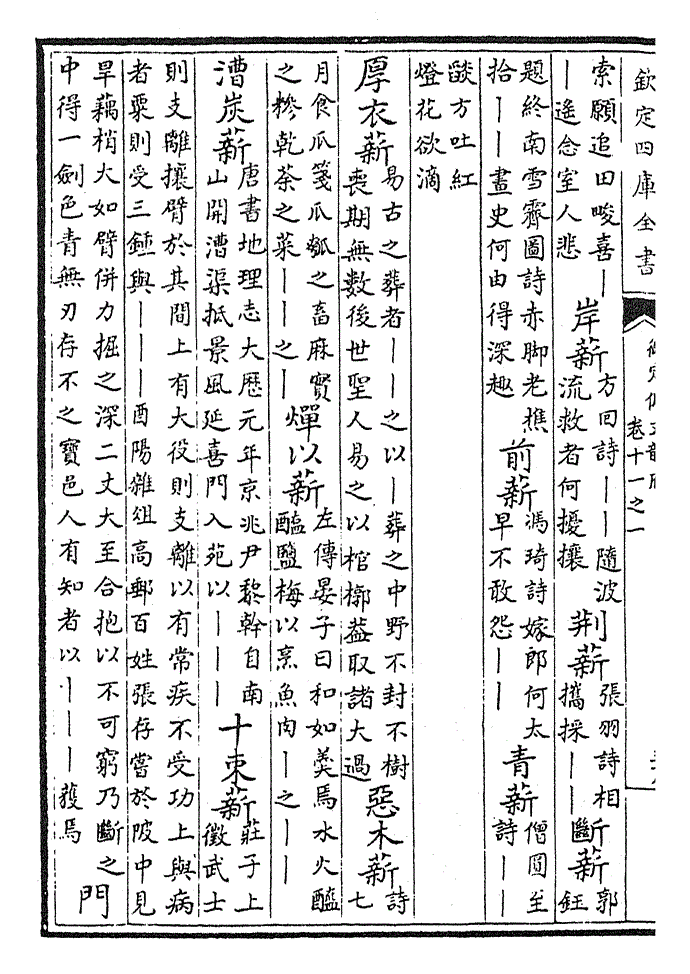 欽定四庫全書
卷十一之一
索願追田畯喜丨
丨遥念室人悲
岸薪
方回詩丨丨隨波
流救者何擾攘
荆薪
張羽詩相
攜採丨丨
斷薪
郭
鈺
題終南雪霽圖詩赤脚老樵
拾丨丨畫史何由得深趣
前薪
馮琦詩嫁郎何太
早不敢怨丨丨
青薪
僧圓至
詩丨丨
燄方吐紅
燈花欲滴
厚衣薪
易古之葬者丨丨之以丨葬之中野不封不樹
喪期無數後世聖人易之以棺槨葢取諸大過
惡木薪
詩
七
月食瓜箋瓜瓠之畜麻實
之糝乾荼之菜丨丨之丨
燀以薪
左傳晏子曰和如羮焉水火醯
醢鹽梅以烹魚肉丨之丨丨
漕炭薪
唐書地理志大歷元年京兆尹黎幹自南
山開漕渠抵景風延喜門入苑以丨丨丨
十束薪
莊子上
徵武士
則支離攘臂於其間上有大役則支離以有常疾不受功上與病
者粟則受三鍾與丨丨丨酉陽雜俎高郵百姓張存嘗於陂中見
旱藕梢大如臂併力掘之深二丈大至合抱以不可窮乃斷之
中得一劍色青無刃存不之寶邑人有知者以丨丨丨獲焉
門